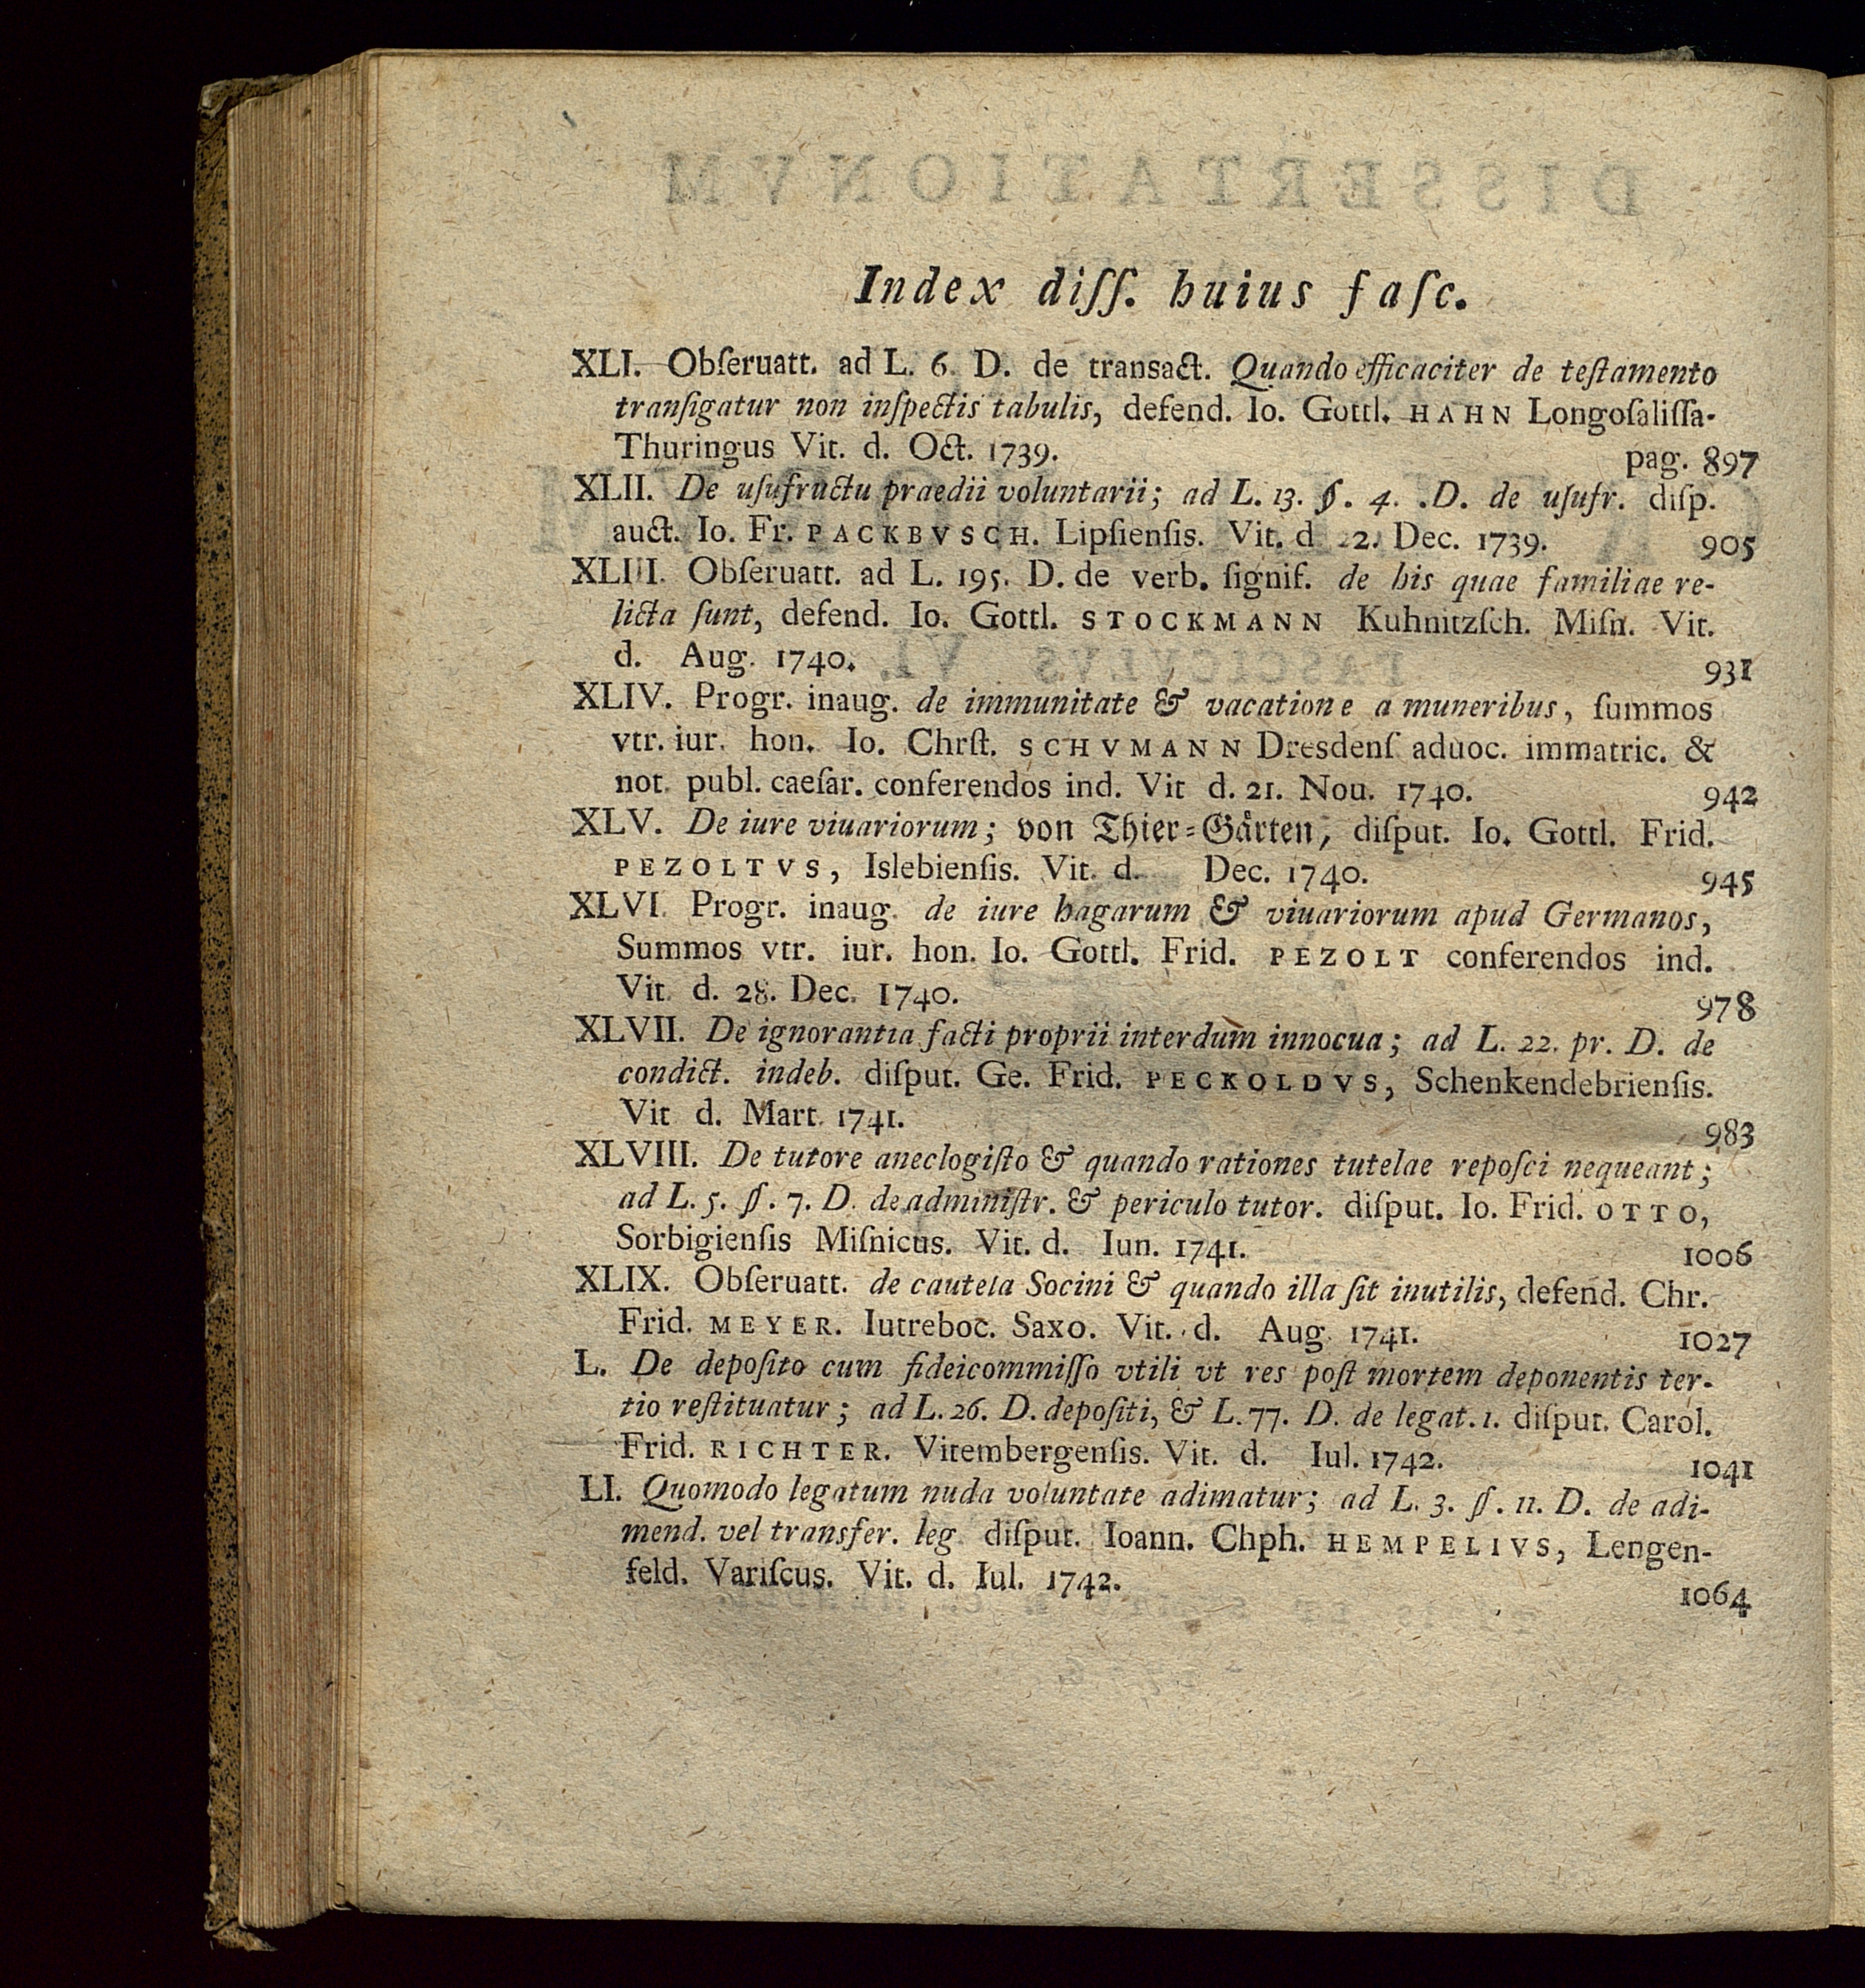 Index diſſ. huius faſc.
XLI. Obſeruatt. ad L. 6. D. de transact. Quando efficaciter de teſtamento
tranſigatur non inſpectis tabulis, defend. Io. Gottl. HAHN Longoſaliſſa-
Thuringus Vit. d. Oct. 1739. pag. 897
XLII. De uſufructu praedii voluntarii; ad L. 13. §. 4. .D. de uſufr. diſp.
auct. Io. Fr. PACKBVSCH. Lipſienſis. Vit. d 22. Dec. 1739. 905
XLIII. Obſeruatt. ad L. 195. D. de verb. ſignif. de his quae familiae re-
licta ſunt, defend. Io. Gottl. STOCKMANN Kuhnitzſch. Miſn. Vit.
d. Aug. 1740. 931
XLIV. Progr. inaug. de immunitate & vacatione a muneribus, ſummos
vtr. iur. hon. Io. Chrſt. SCHVMANN Dresdenſ aduoc. immatric. &
not. publ. caeſar. conferendos ind. Vit d. 21. Nou. 1740. 942
XLV. De iure viuariorum; von Thier=Gärten, diſput. Io. Gottl. Frid.
PEZOLTVS, Islebienſis. Vit. d. Dec. 1740. 945
XLVI. Progr. inaug. de iure hagarum & viuariorum apud Germanos,
Summos vtr. iur. hon. Io. Gottl. Frid. PEZOLT conferendos ind.
Vit. d. 28. Dec. 1740. 978
XLVII. De ignorantia facti proprii interdum innocua; ad L. 22. pr. D. de
condict. indeb. diſput. Ge. Frid. PECKOLDVS, Schenkendebrienſis.
Vit d. Mart. 1741. 983
XLVIII. De tutore aneclogiſto & quando rationes tutelae repoſci nequeant;
ad L. 5. §. 7. D. de adminiſtr. & periculo tutor. diſput. Io. Frid. OTTO,
Sorbigienſis Miſnicus. Vit. d. Iun. 1741. 1006
XLIX. Obſeruatt. de cautela Socini & quando illa ſit inutilis, defend. Chr.
Frid. MEYER. Iutreboc. Saxo. Vit. d. Aug. 1741. 1027
L. De depoſito cum fideicommiſſo vtili vt res poſt mortem deponentis ter-
tio reſtituatur; ad L. 26. D. depoſiti, & L. 77. D. de legat. 1. diſput. Carol.
Frid. RICHTER. Vitembergenſis. Vit. d. Iul. 1742. 1041
LI. Quomodo legatum nuda voluntate adimatur; ad L. 3. §. 11. D. de adi-
mend. vel transfer. leg. diſput. Ioann. Chph. HEMPELIVS, Lengen-
feld. Variſcus. Vit. d. Iul. 1742. 1064